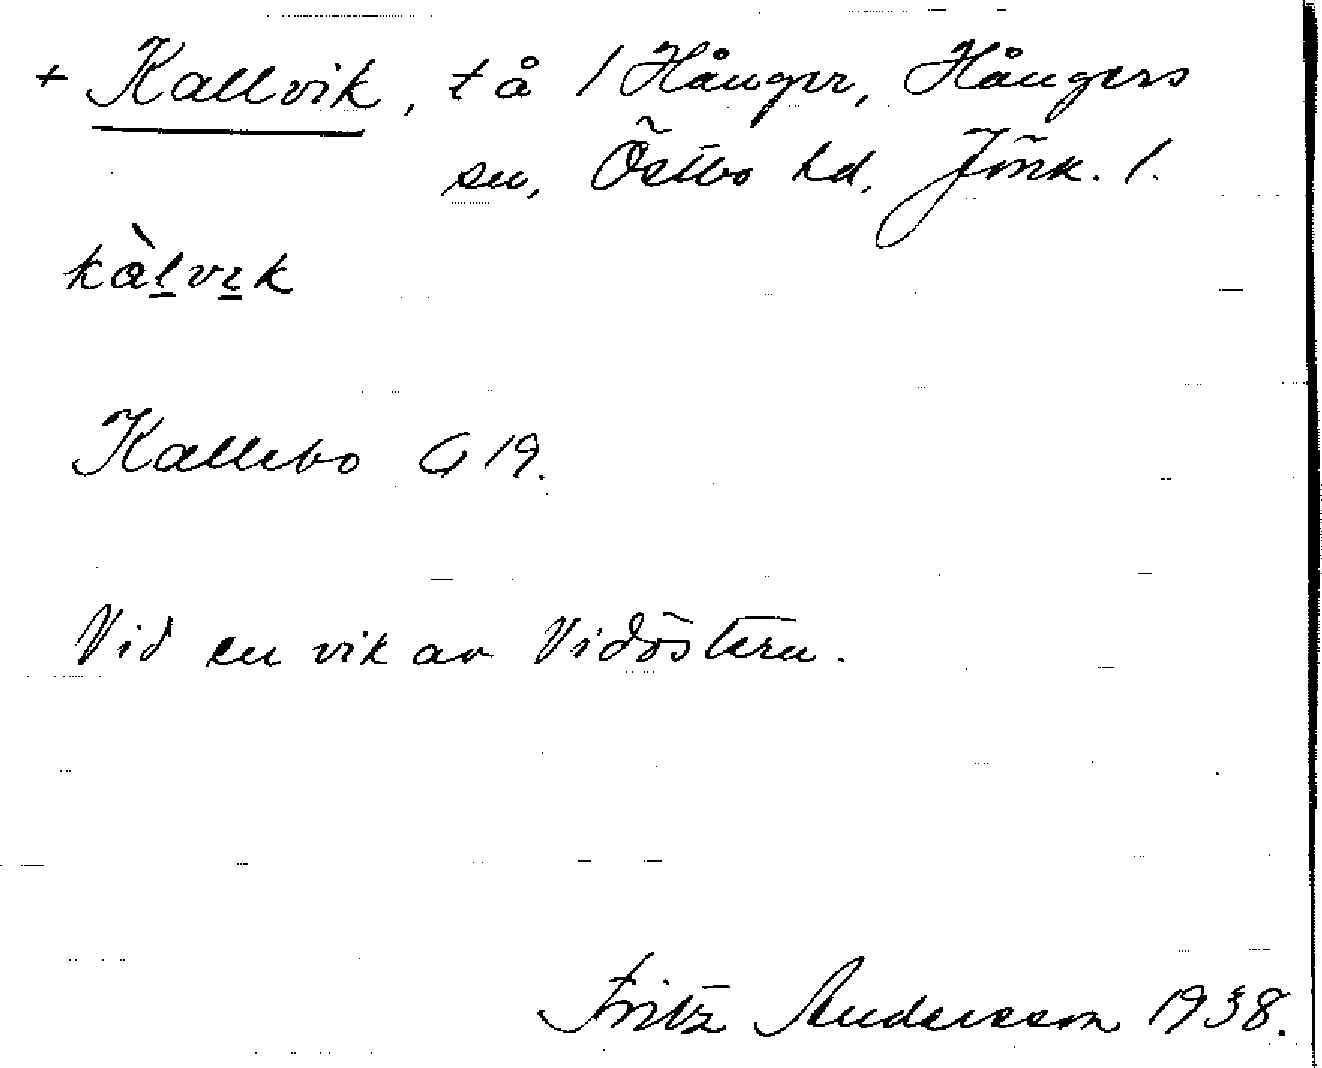 + Kallvik, t å 1 Hånger, Hångers
sn, Östbo hd, Jönk. l.
kàl̠vi̠k
Kallebo G 19.
Vid en vik av Vidöstern.
Fritz Andersson 1938.